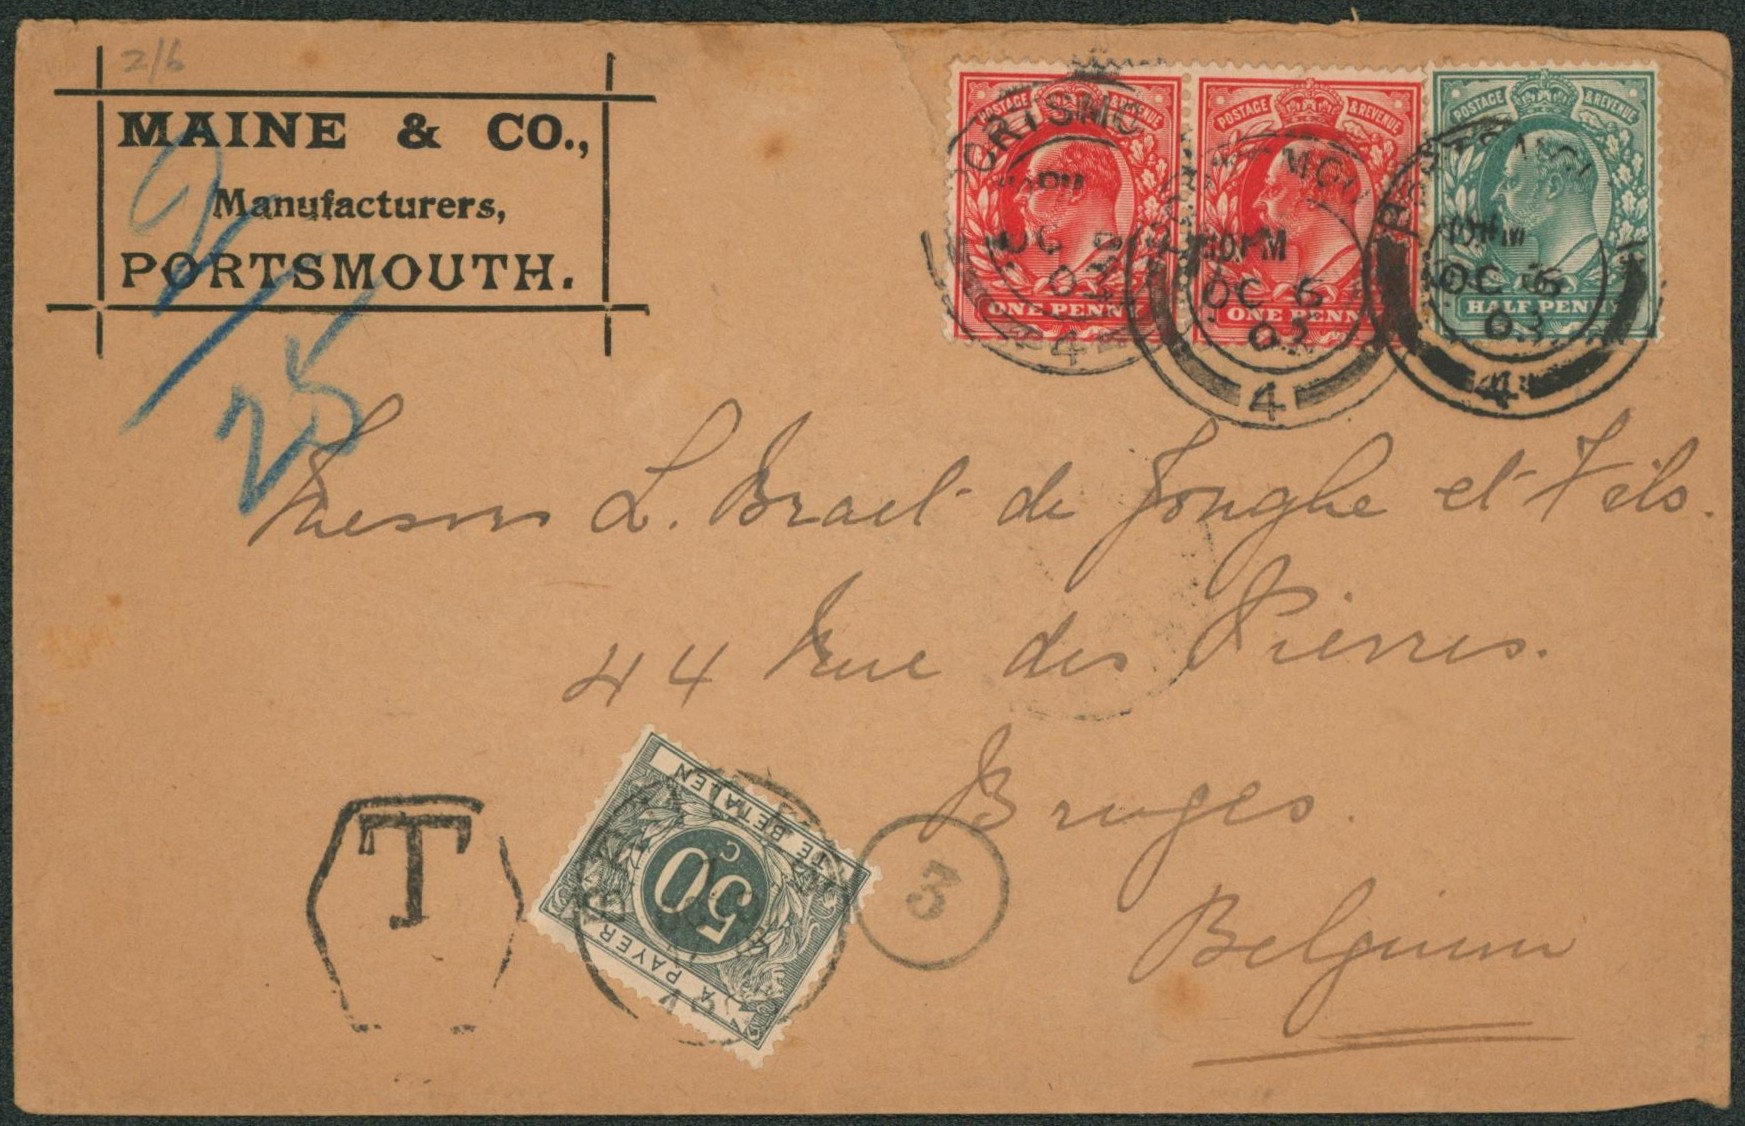 2/6
MAINE & CO.,
Manufacturers,
PORTSMOUTH.
2/25
POSTAGE & REVENUE
ONE PENNY
POSTAGE & REVENUE
ONE PENNY
POSTAGE & REVENUE
HALF PENNY
PORTSMO
PM
OC
03
4
PM
OC 6
03
4
OC 6
03
4
Messrs L. Brael de Jonghe et Fils.
44 Rue des Pierres.
Bruges.
Belgium
T
TE BETALEN
50
C
A PAYER
3